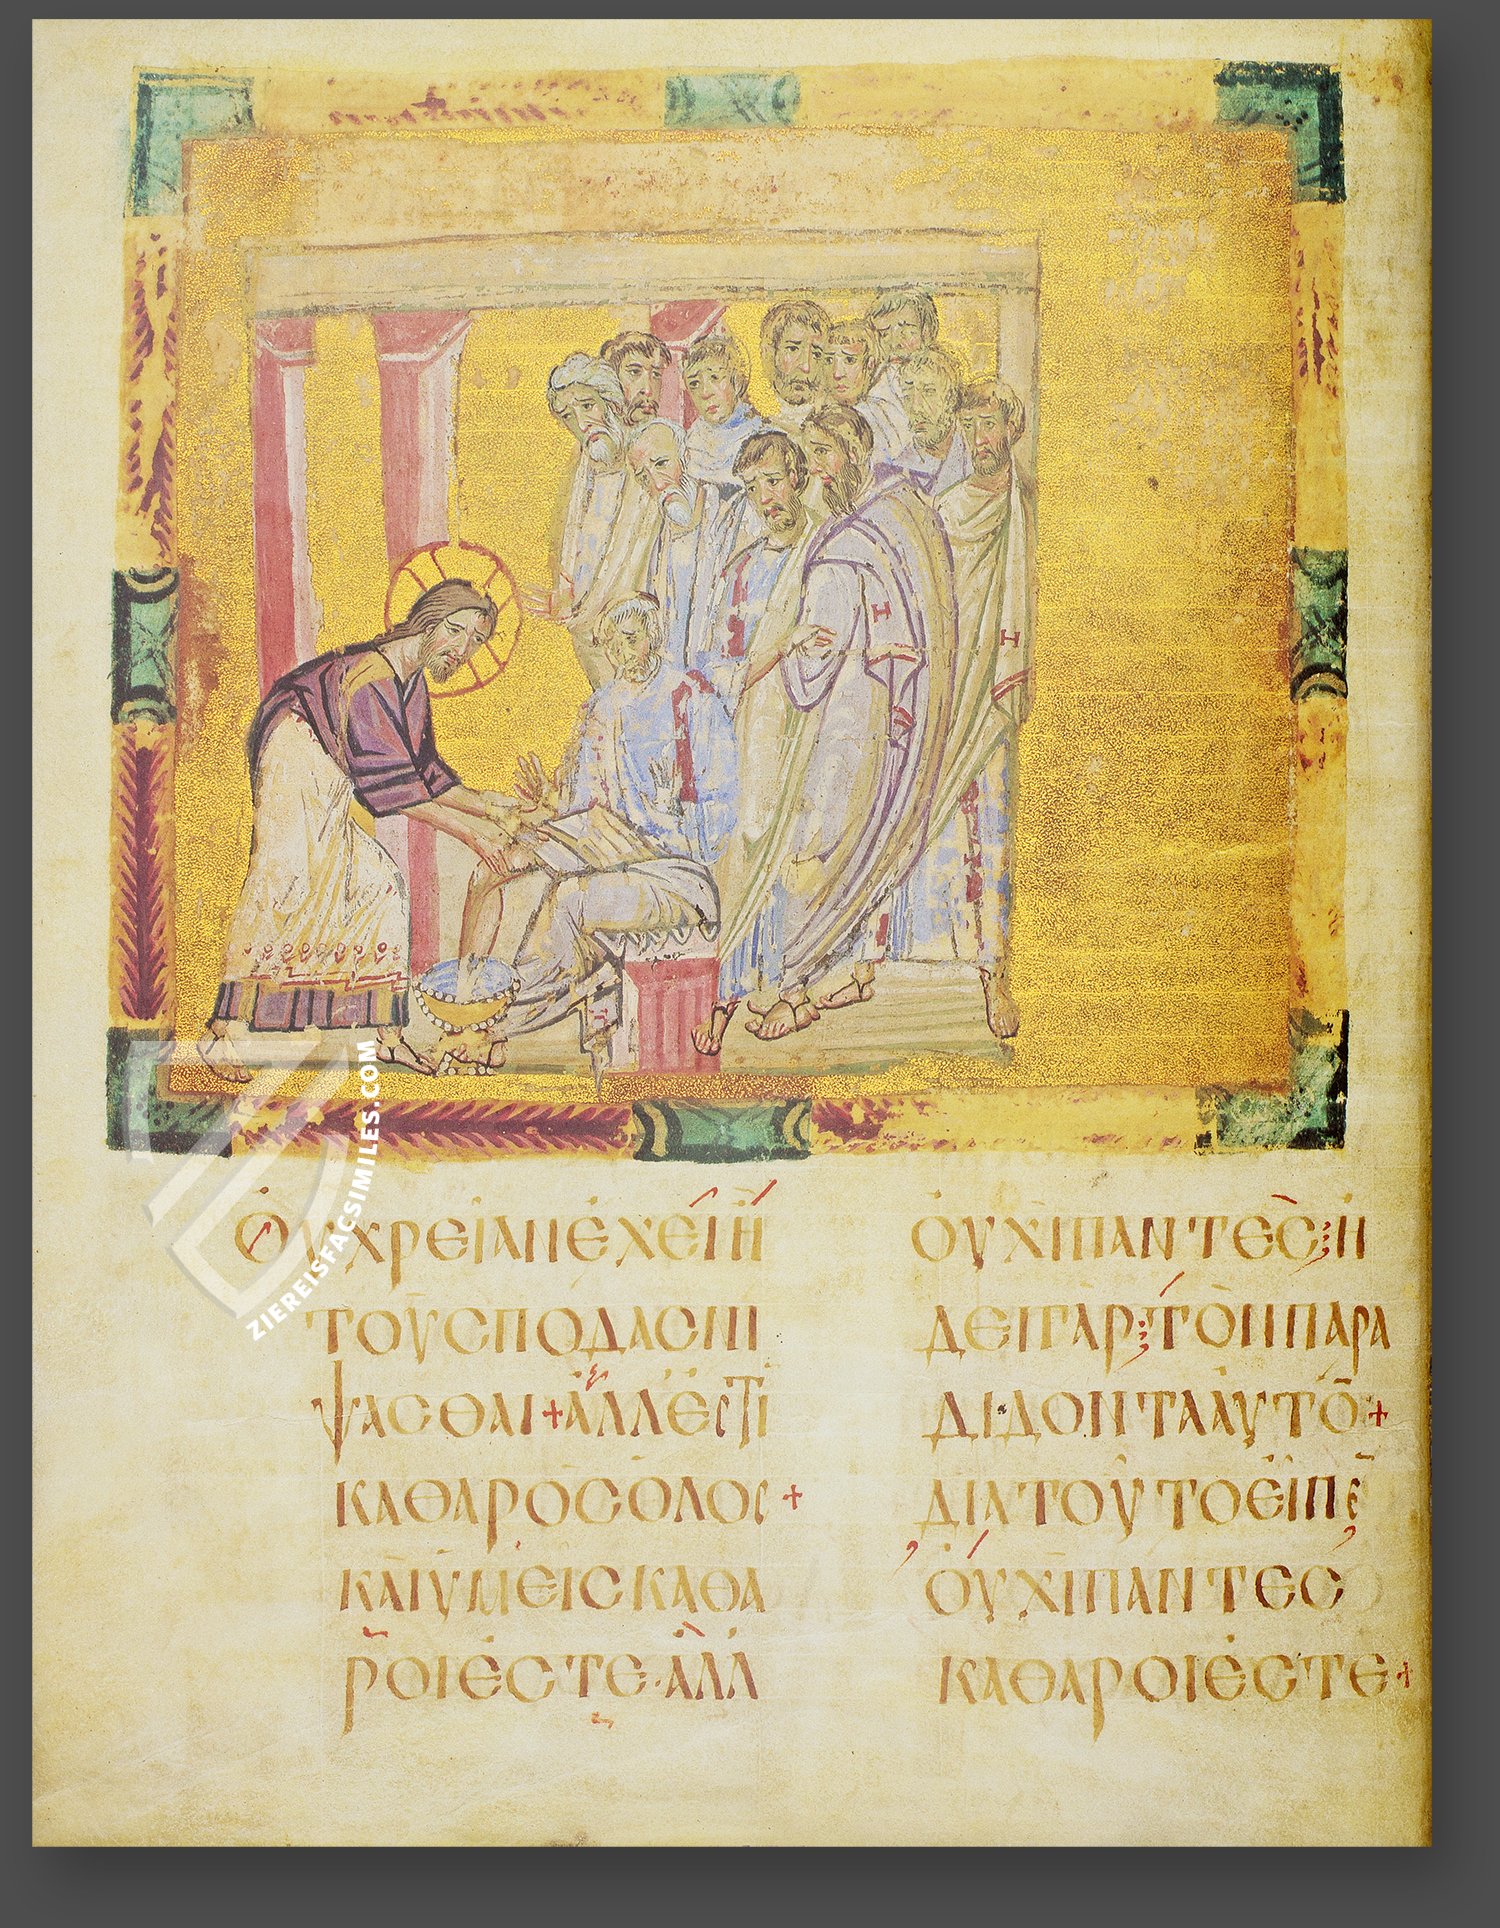 ΟΥΧΡΕΙΑΝΕΧΕΙΗ
ΤΟΥΣΠΟΔΑΣΝΙ
ΨΑΣΘΑΙ+ΑΛΛΕΣΤΙ
ΚΑΘΑΡΟΣΟΛΟΣ+
ΚΑΙΥΜΕΙΣΚΑΘΑ
ΡΟΙΕΣΤΕ·ΑΛΛ
ΟΥΧΙΠΑΝΤΕΣ:Η
ΔΕΙΓΑΡ:ΤΟΝΠΑΡΑ
ΔΙΔΟΝΤΑΑΥΤΟ̅+
ΔΙΑΤΟΥΤΟΕΙΠΕ
ΟΥΧΙΠΑΝΤΕΣ
ΚΑΘΑΡΟΙΕΣΤΕ+
ZIEREISFACSIMILES.COM